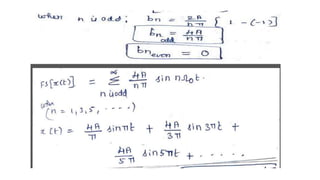 when n is odd; bn = 2A/nπ { 1 - (-1)
bn odd = 4A/nπ
bn even = 0
FS[x(t)] = ∞ Σ n is odd 4A/nπ sin nΩ₀t.
(n = 1, 3, 5, ....)
x(t) = 4A/π sin πt + 4A/3π sin 3πt +
4A/5π sin 5πt + ......